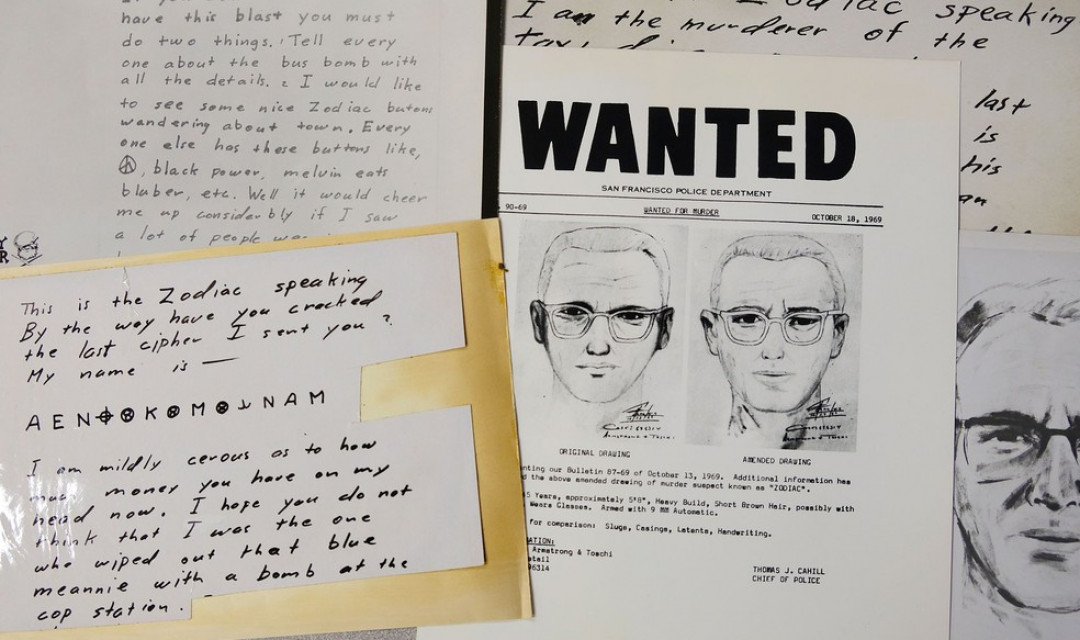 have this blast you must
do two things. Tell every
one about the bus bomb with
all the details. 2 I would like
to see some nice Zodiac butons
wandering about town. Every
one else has these buttons like,
☮, black power, melvin eats
bluber, etc. Well it would cheer
me up considerbly if I saw
a lot of people
This is the Zodiac speaking
By the way have you cracked
the last cipher I sent you?
My name is —
A E N ⌖ ⊗ K ⊗ M ⊗ ⅃ N A M
I am mildly cerous as to how
much money you have on my
head now. I hope you do not
think that I was the one
who wiped out that blue
meannie with a bomb at the
cop station.
speaking
I am the murderer of the
last
is
his
an
WANTED
SAN FRANCISCO POLICE DEPARTMENT
90-69 WANTED FOR MURDER OCTOBER 18, 1969
ORIGINAL DRAWING AMENDED DRAWING
nting our Bulletin 87-69 of October 13, 1969. Additional information has
d the above amended drawing of murder suspect known as "ZODIAC".
5 Years, approximately 5'8", Heavy Build, Short Brown Hair, possibly with
Wears Glasses. Armed with 9 MM Automatic.
for comparison: Slugs, Casings, Latents, Handwriting.
ATION:
Armstrong & Toschi
etail
96314
THOMAS J. CAHILL
CHIEF OF POLICE